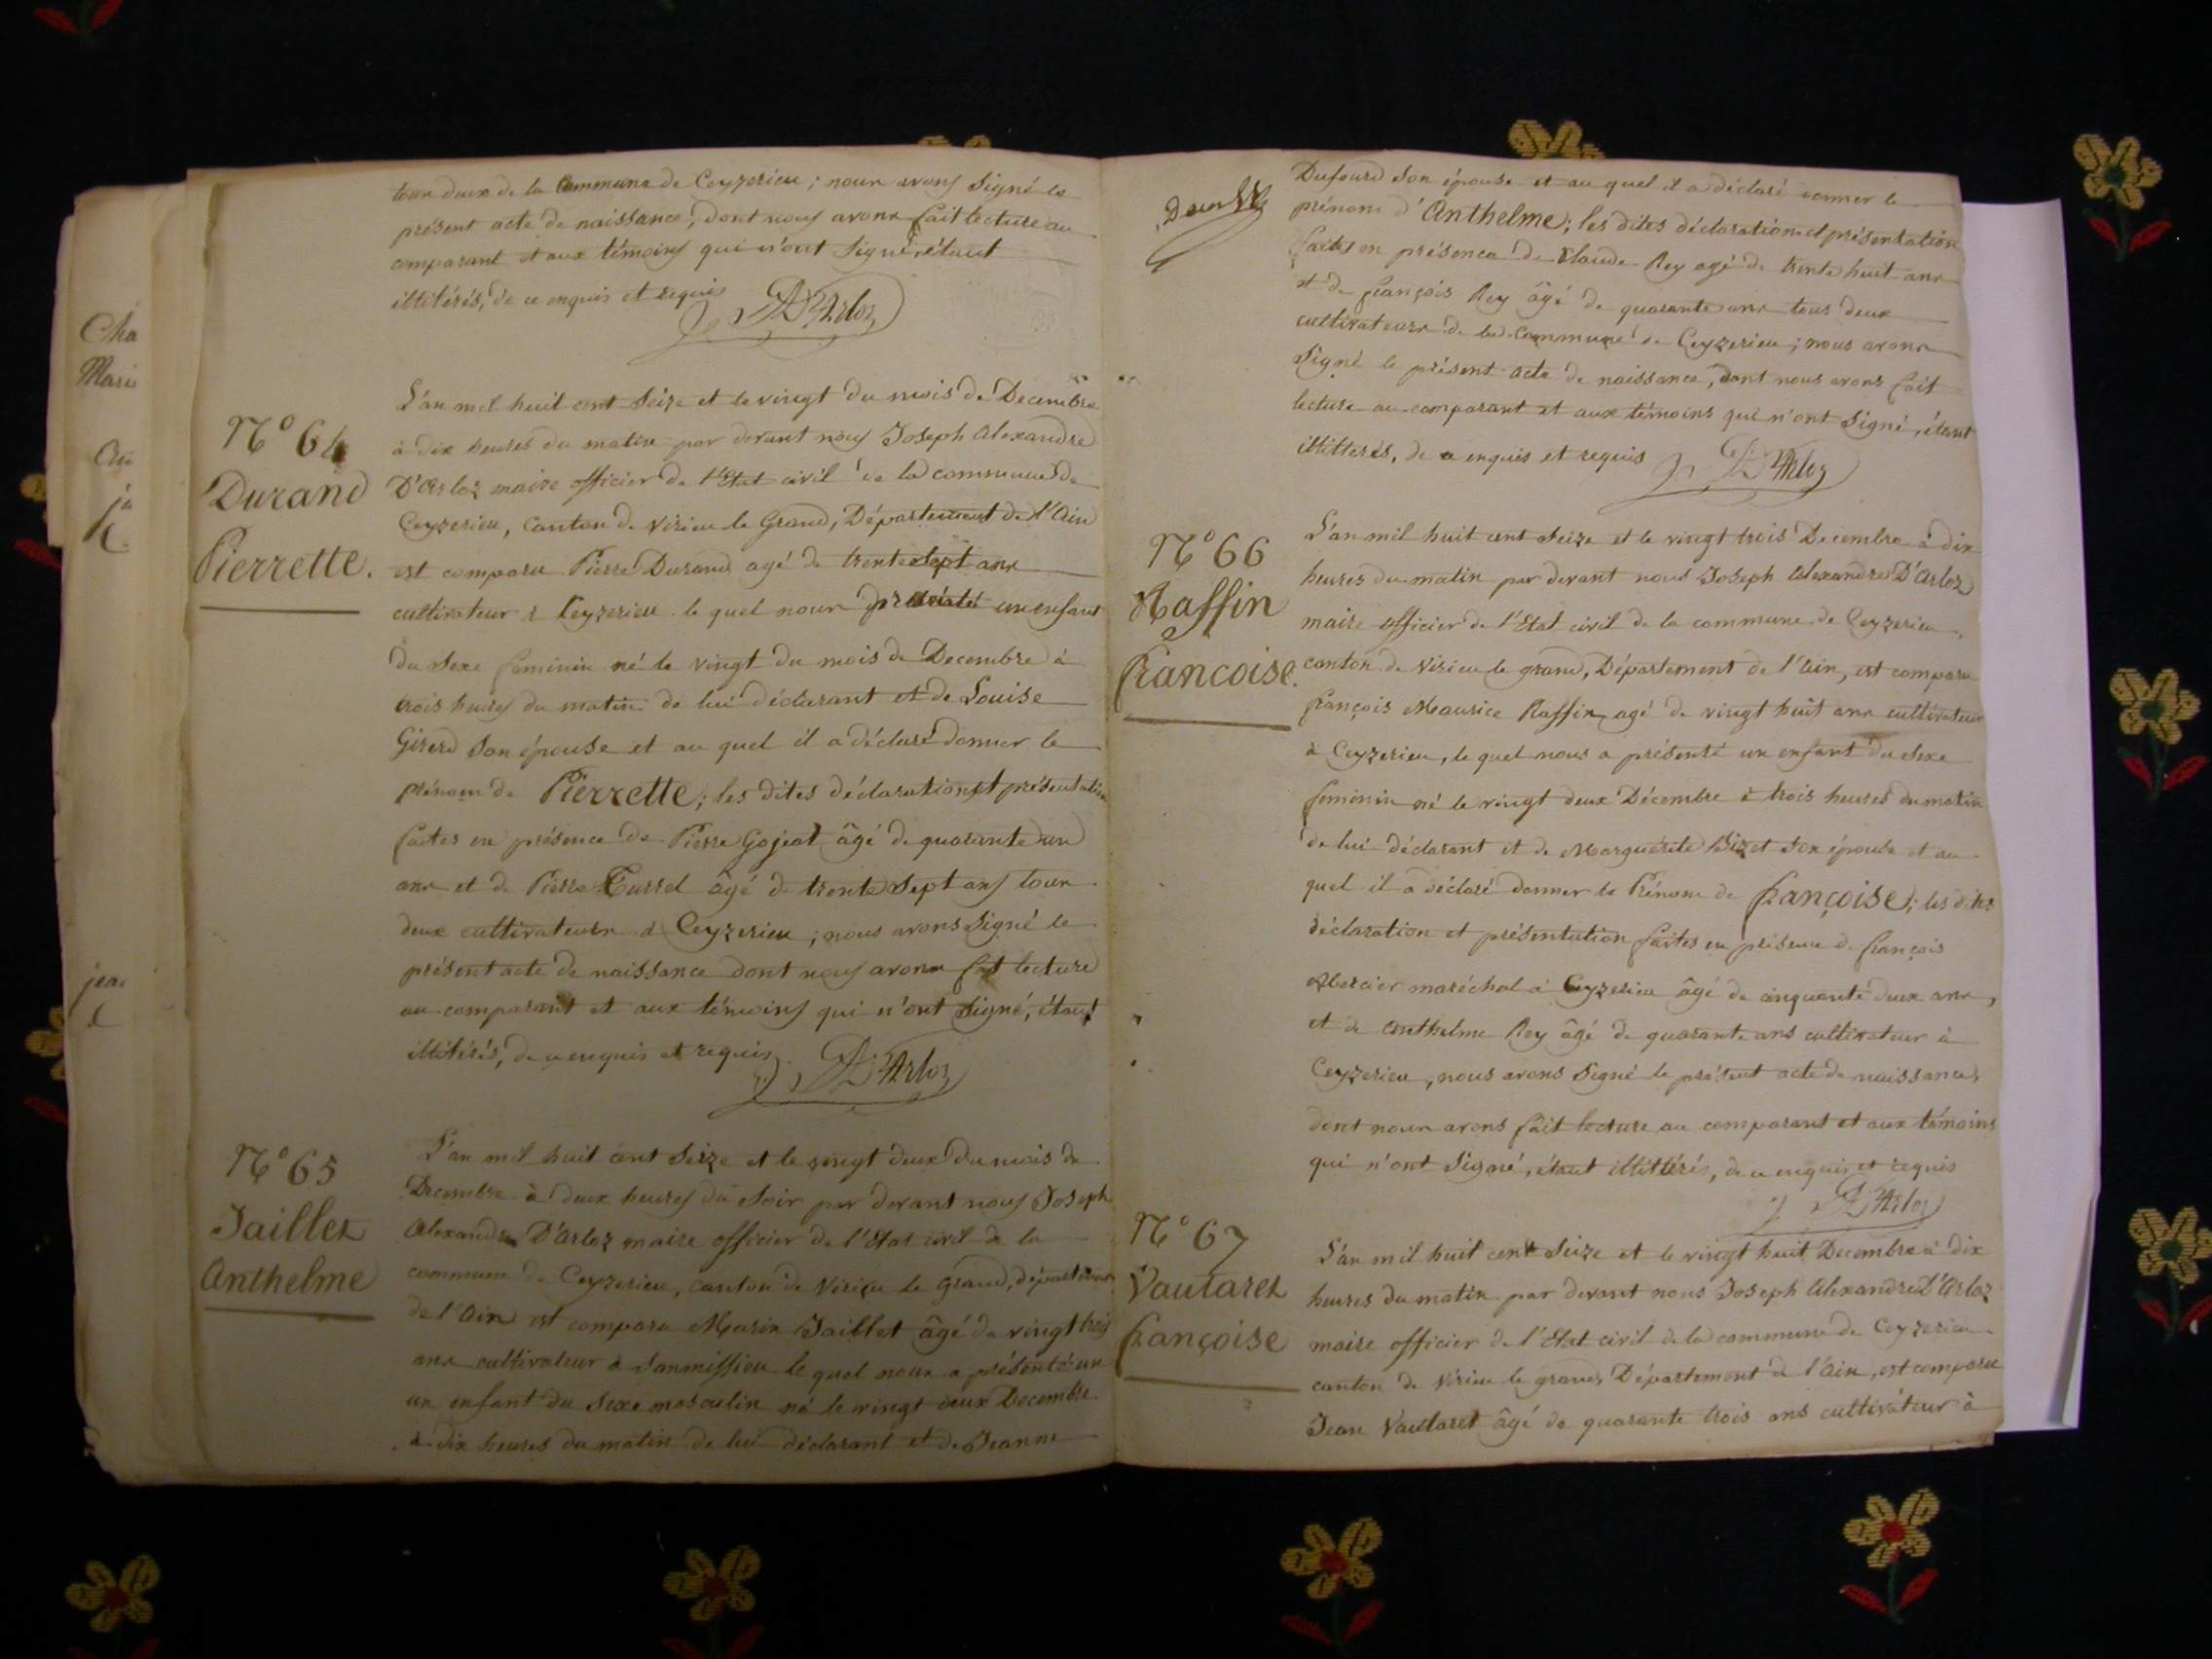 Cha
Marie
jea
tous deux de la Commune de Ceyzerieu; nous avons signé le
présent acte de naissance, dont nous avons fait lecture au
comparant et aux témoins qui n'ont signé, étant
illitérés, de ce enquis et requis
D'Arloz
N° 64
Durand
Pierrette.
L'an mil huit cent seize et le vingt du mois de Decembre
à dix heures du matin par devant nous Joseph Alexandre
D'Arloz maire officier de l'Etat civil de la commune de
Ceyzerieu, Canton de Virieu le Grand, Département de l'Ain
est comparu Pierre Durand agé de trente sept ans
cultivateur à Ceyzerieu le quel nous présenté un enfant
du sexe feminin né le vingt du mois de Decembre à
trois heures du matin de lui déclarant et de Louise
Girerd son épouse et au quel il a déclaré donner le
prénom de Pierrette; les dites déclaration et présentation
faites en présence de Pierre Gojeat âgé de quarante un
ans et de Pierre Turrel âgé de trente sept ans tous
deux cultivateurs à Ceyzerieu; nous avons signé le
présent acte de naissance dont nous avons fait lecture
au comparant et aux témoins qui n'ont signé, étant
illitérés, de ce enquis et requis
D'Arloz
N° 65
Jaillet
Anthelme
L'an mil huit cent seize et le vingt deux du mois de
Decembre à deux heures du soir par devant nous Joseph
Alexandre D'Arloz maire officier de l'Etat civil de la
commune de Ceyzerieu, canton de Virieu le grand, département
de l'Ain est comparu Marin Jaillet âgé de vingt trois
ans cultivateur à Sanmissieu le quel nous a présenté un
un enfant du sexe masculin né le vingt deux Decembre
à dix heures du matin de lui déclarant et de Jeanne
Dufourd son épouse et au quel il a déclaré donner le
prénom d'Anthelme; les dites déclaration et présentation
faites en présence de Claude Rey agé de trente huit ans
et de françois Rey âgé de quarante ans tous deux
cultivateurs de la Commune de Ceyzerieu; nous avons
signé le présent acte de naissance, dont nous avons fait
lecture au comparant et aux témoins qui n'ont signé, étant
illitterés, de ce enquis et requis
D'Arloz
N° 66
Raffin
francoise.
L'an mil huit cent seize et le vingt trois Decembre à dix
heures du matin par devant nous Joseph Alexandre D'Arloz
maire officier de l'Etat civil de la commune de Ceyzerieu,
canton de Virieu le grand, Département de l'Ain, est comparu
françois Maurice Raffin agé de vingt huit ans cultivateur
à Ceyzerieu, le quel nous a présenté un enfant du sexe
feminin né le vingt deux Décembre à trois heures du matin
de lui déclarant et de Marguerite Bizet son épouse et au
quel il a déclaré donner le Prénom de françoise; les dites
déclaration et présentation faites en présence de françois
Mercier maréchal à Ceyzerieu âgé de cinquante deux ans,
et de Anthelme Rey âgé de quarante ans cultivateur à
Ceyzerieu, nous avons signé le présent acte de naissance,
dont nous avons fait lecture au comparant et aux témoins
qui n'ont signé, étant illittérés, de ce enquis et requis
D'Arloz
N° 67
Vautaret
françoise
L'an mil huit cent seize et le vingt huit Decembre à dix
heures du matin par devant nous Joseph Alexandre D'Arloz
maire officier de l'Etat civil de la commune de Ceyzerieu
canton de Virieu le grand, Département de l'Ain, est comparu
Jean Vautaret âgé de quarante trois ans cultivateur à